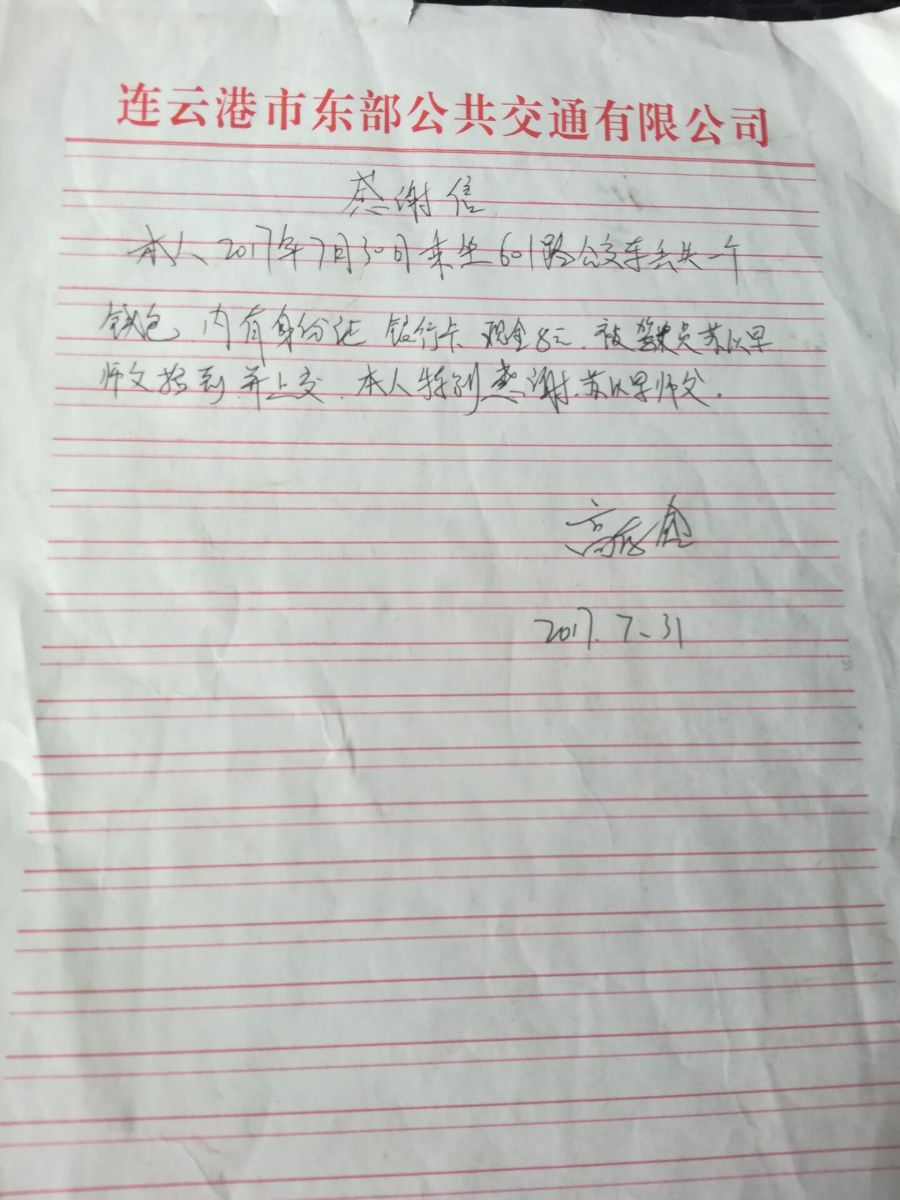 连云港市东部公共交通有限公司
感谢信
本人2017年7月30日乘坐601路公交车丢失一个
钱包,内有身份证 银行卡 现金8元.被驾驶员苏以早
师父拾到并上交.本人特别感谢苏以早师父.
2017.7.31